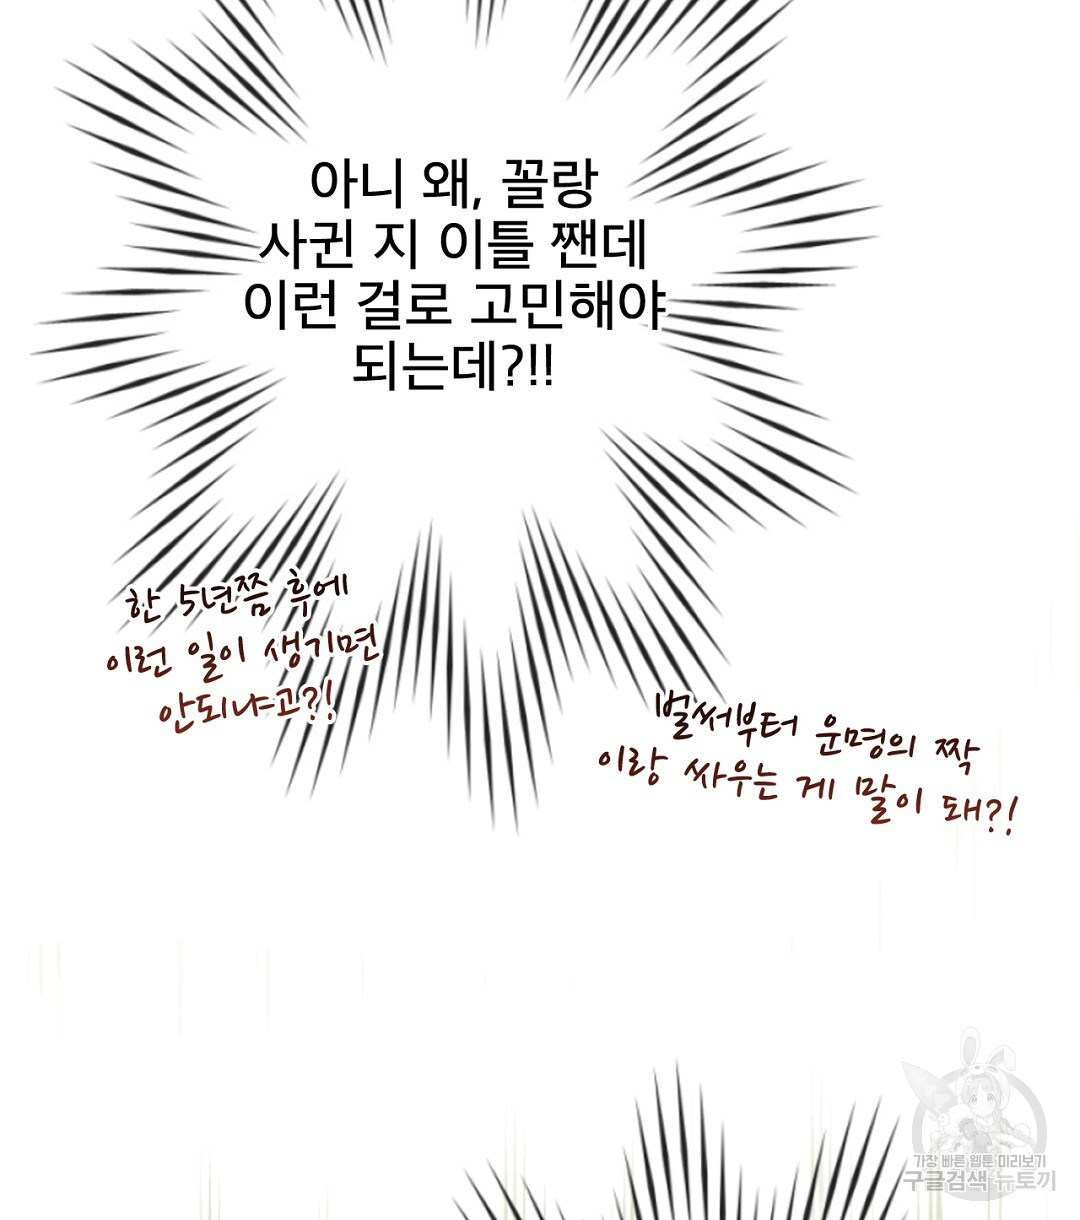 아니 왜, 꼴랑
사귄 지 이틀 짼데
이런 걸로 고민해야
되는데?!!
한 5년쯤 후에
이런 일이 생기면
안되냐고?!
벌써부터 운명의 짝
이랑 싸우는 게 말이 돼?!
가장 빠른 웹툰 미리보기
구글검색 뉴토끼